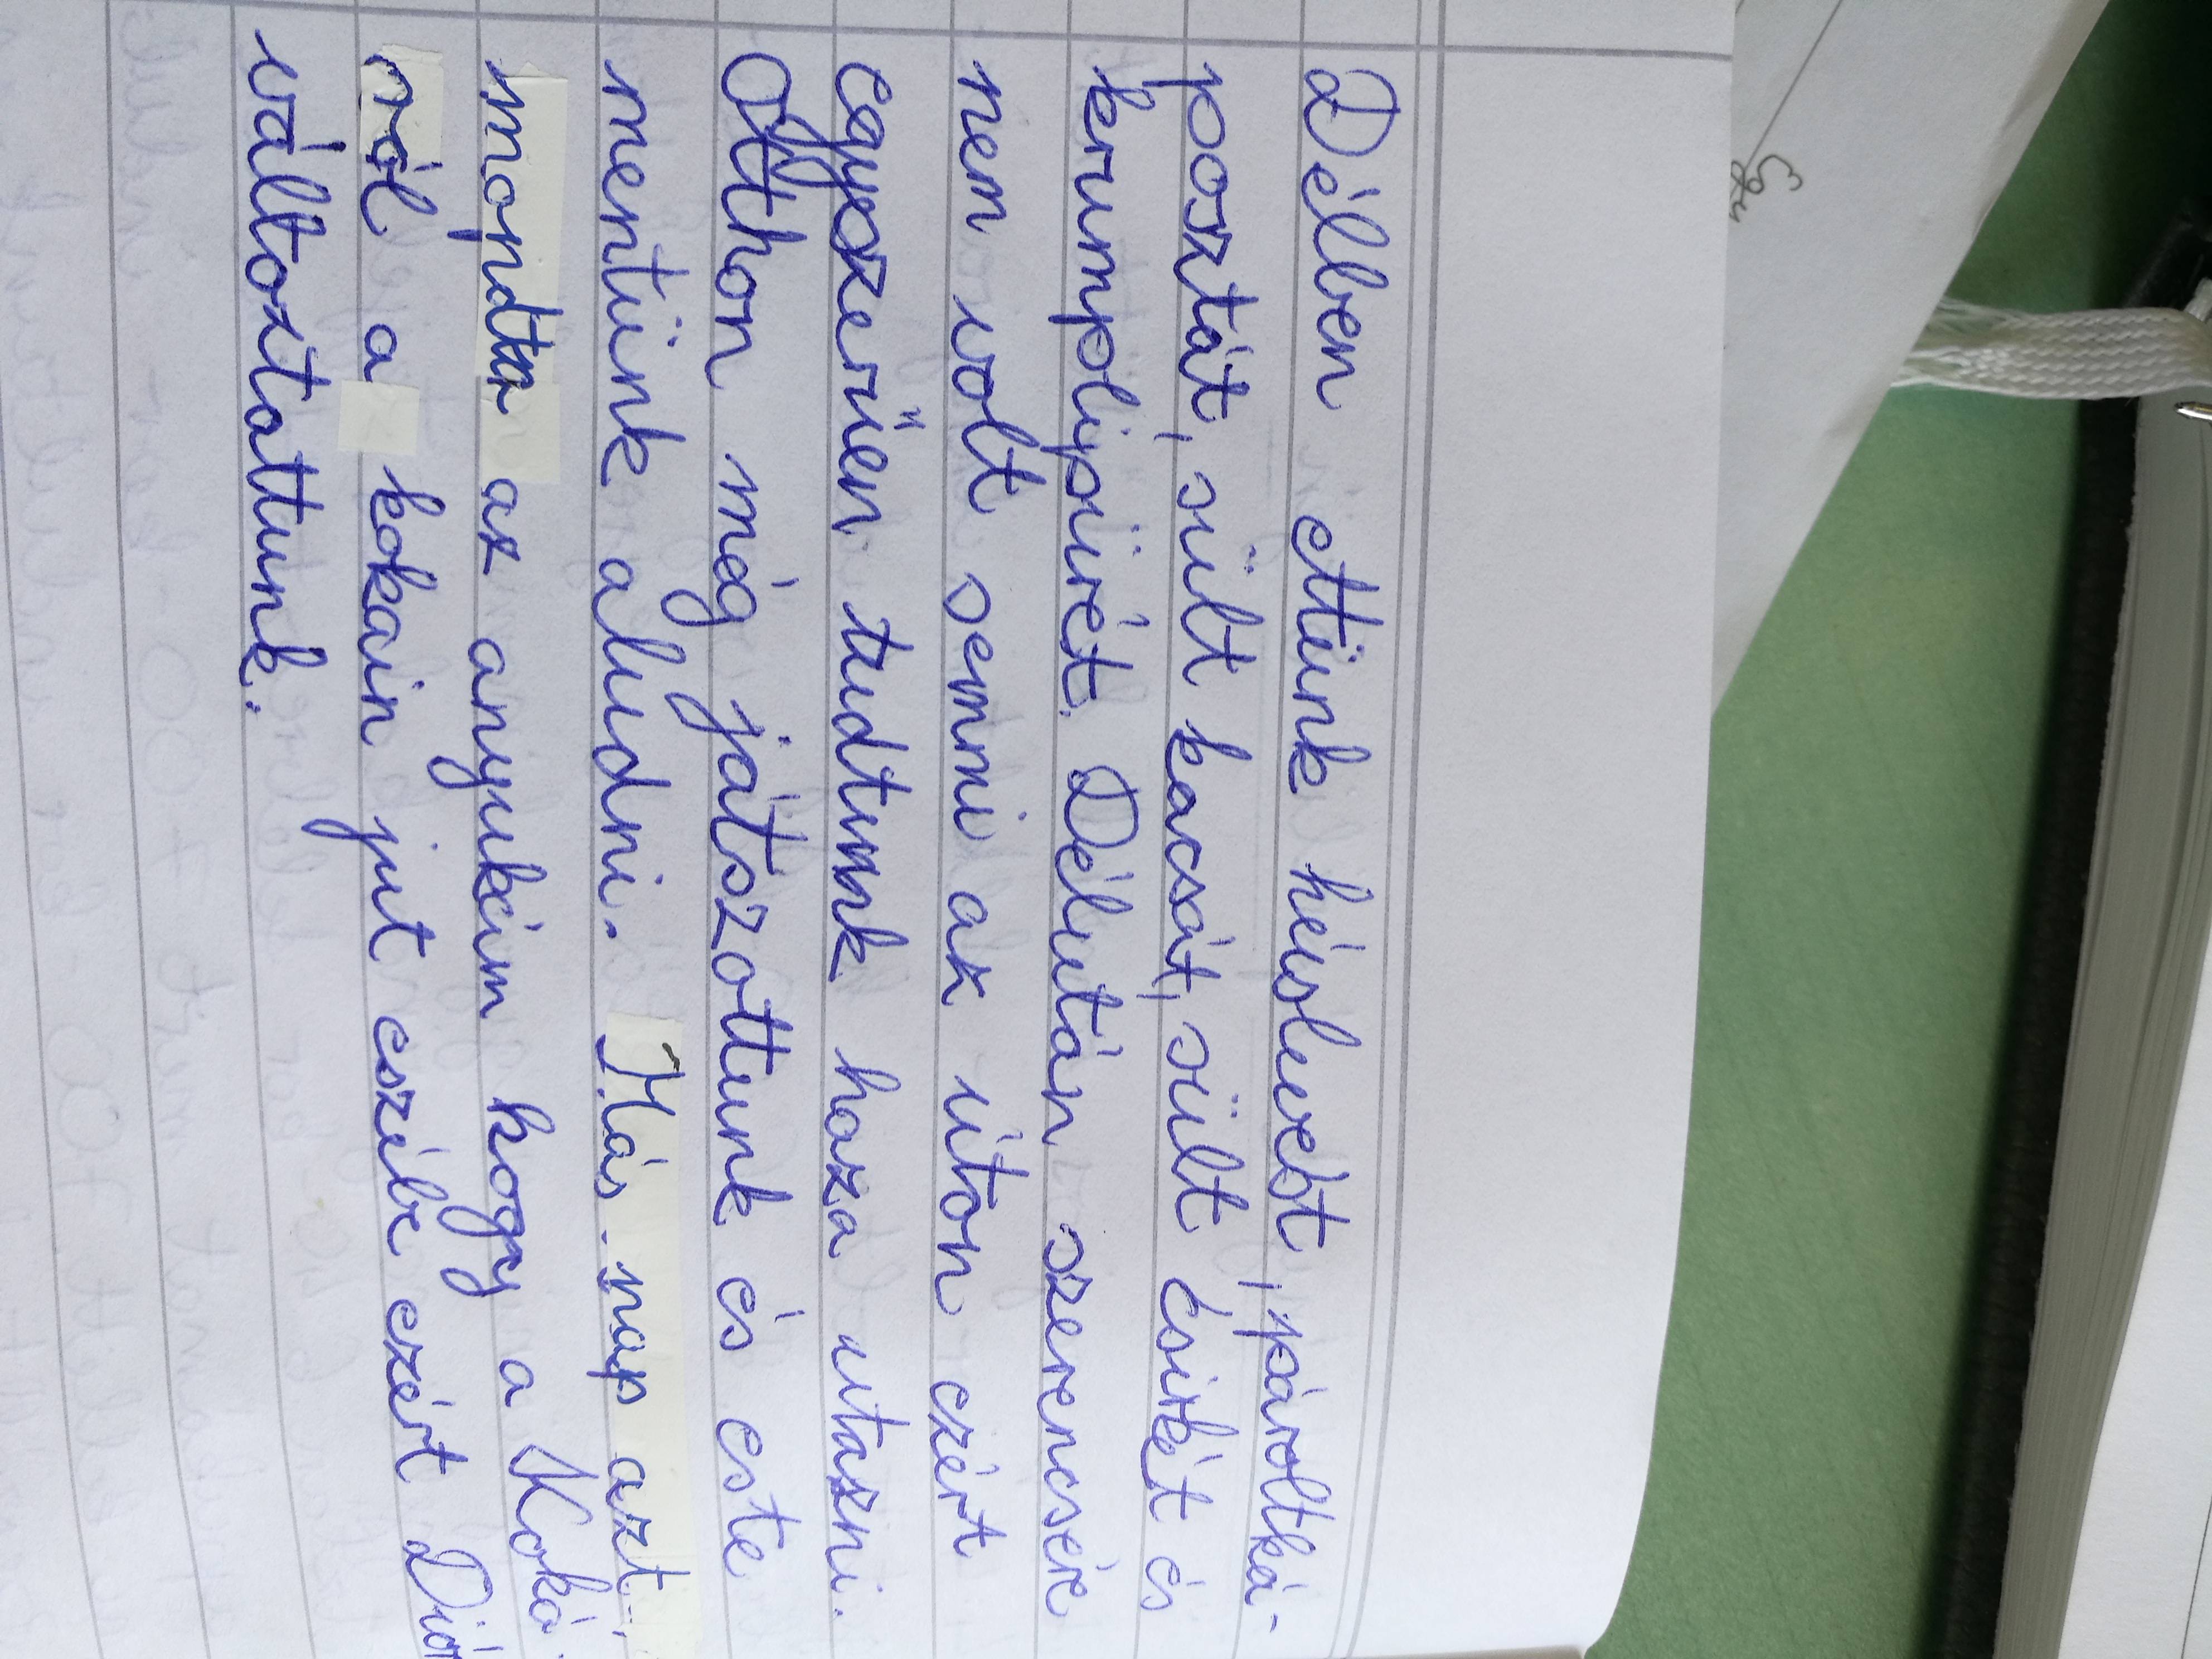 Délben ettünk húslevest, pároltká-
posztát, sült kacsát, sült csirkét és
krumplipürét. Délután szerencsére
nem volt semmi az úton ezért
egyszerűen tudtunk haza utazni.
Otthon még játszottunk és este
mentünk aludni. Más nap azt
mondta az anyukám hogy a Koká
ról a kokain jut eszébe ezért Dió
változtattunk.